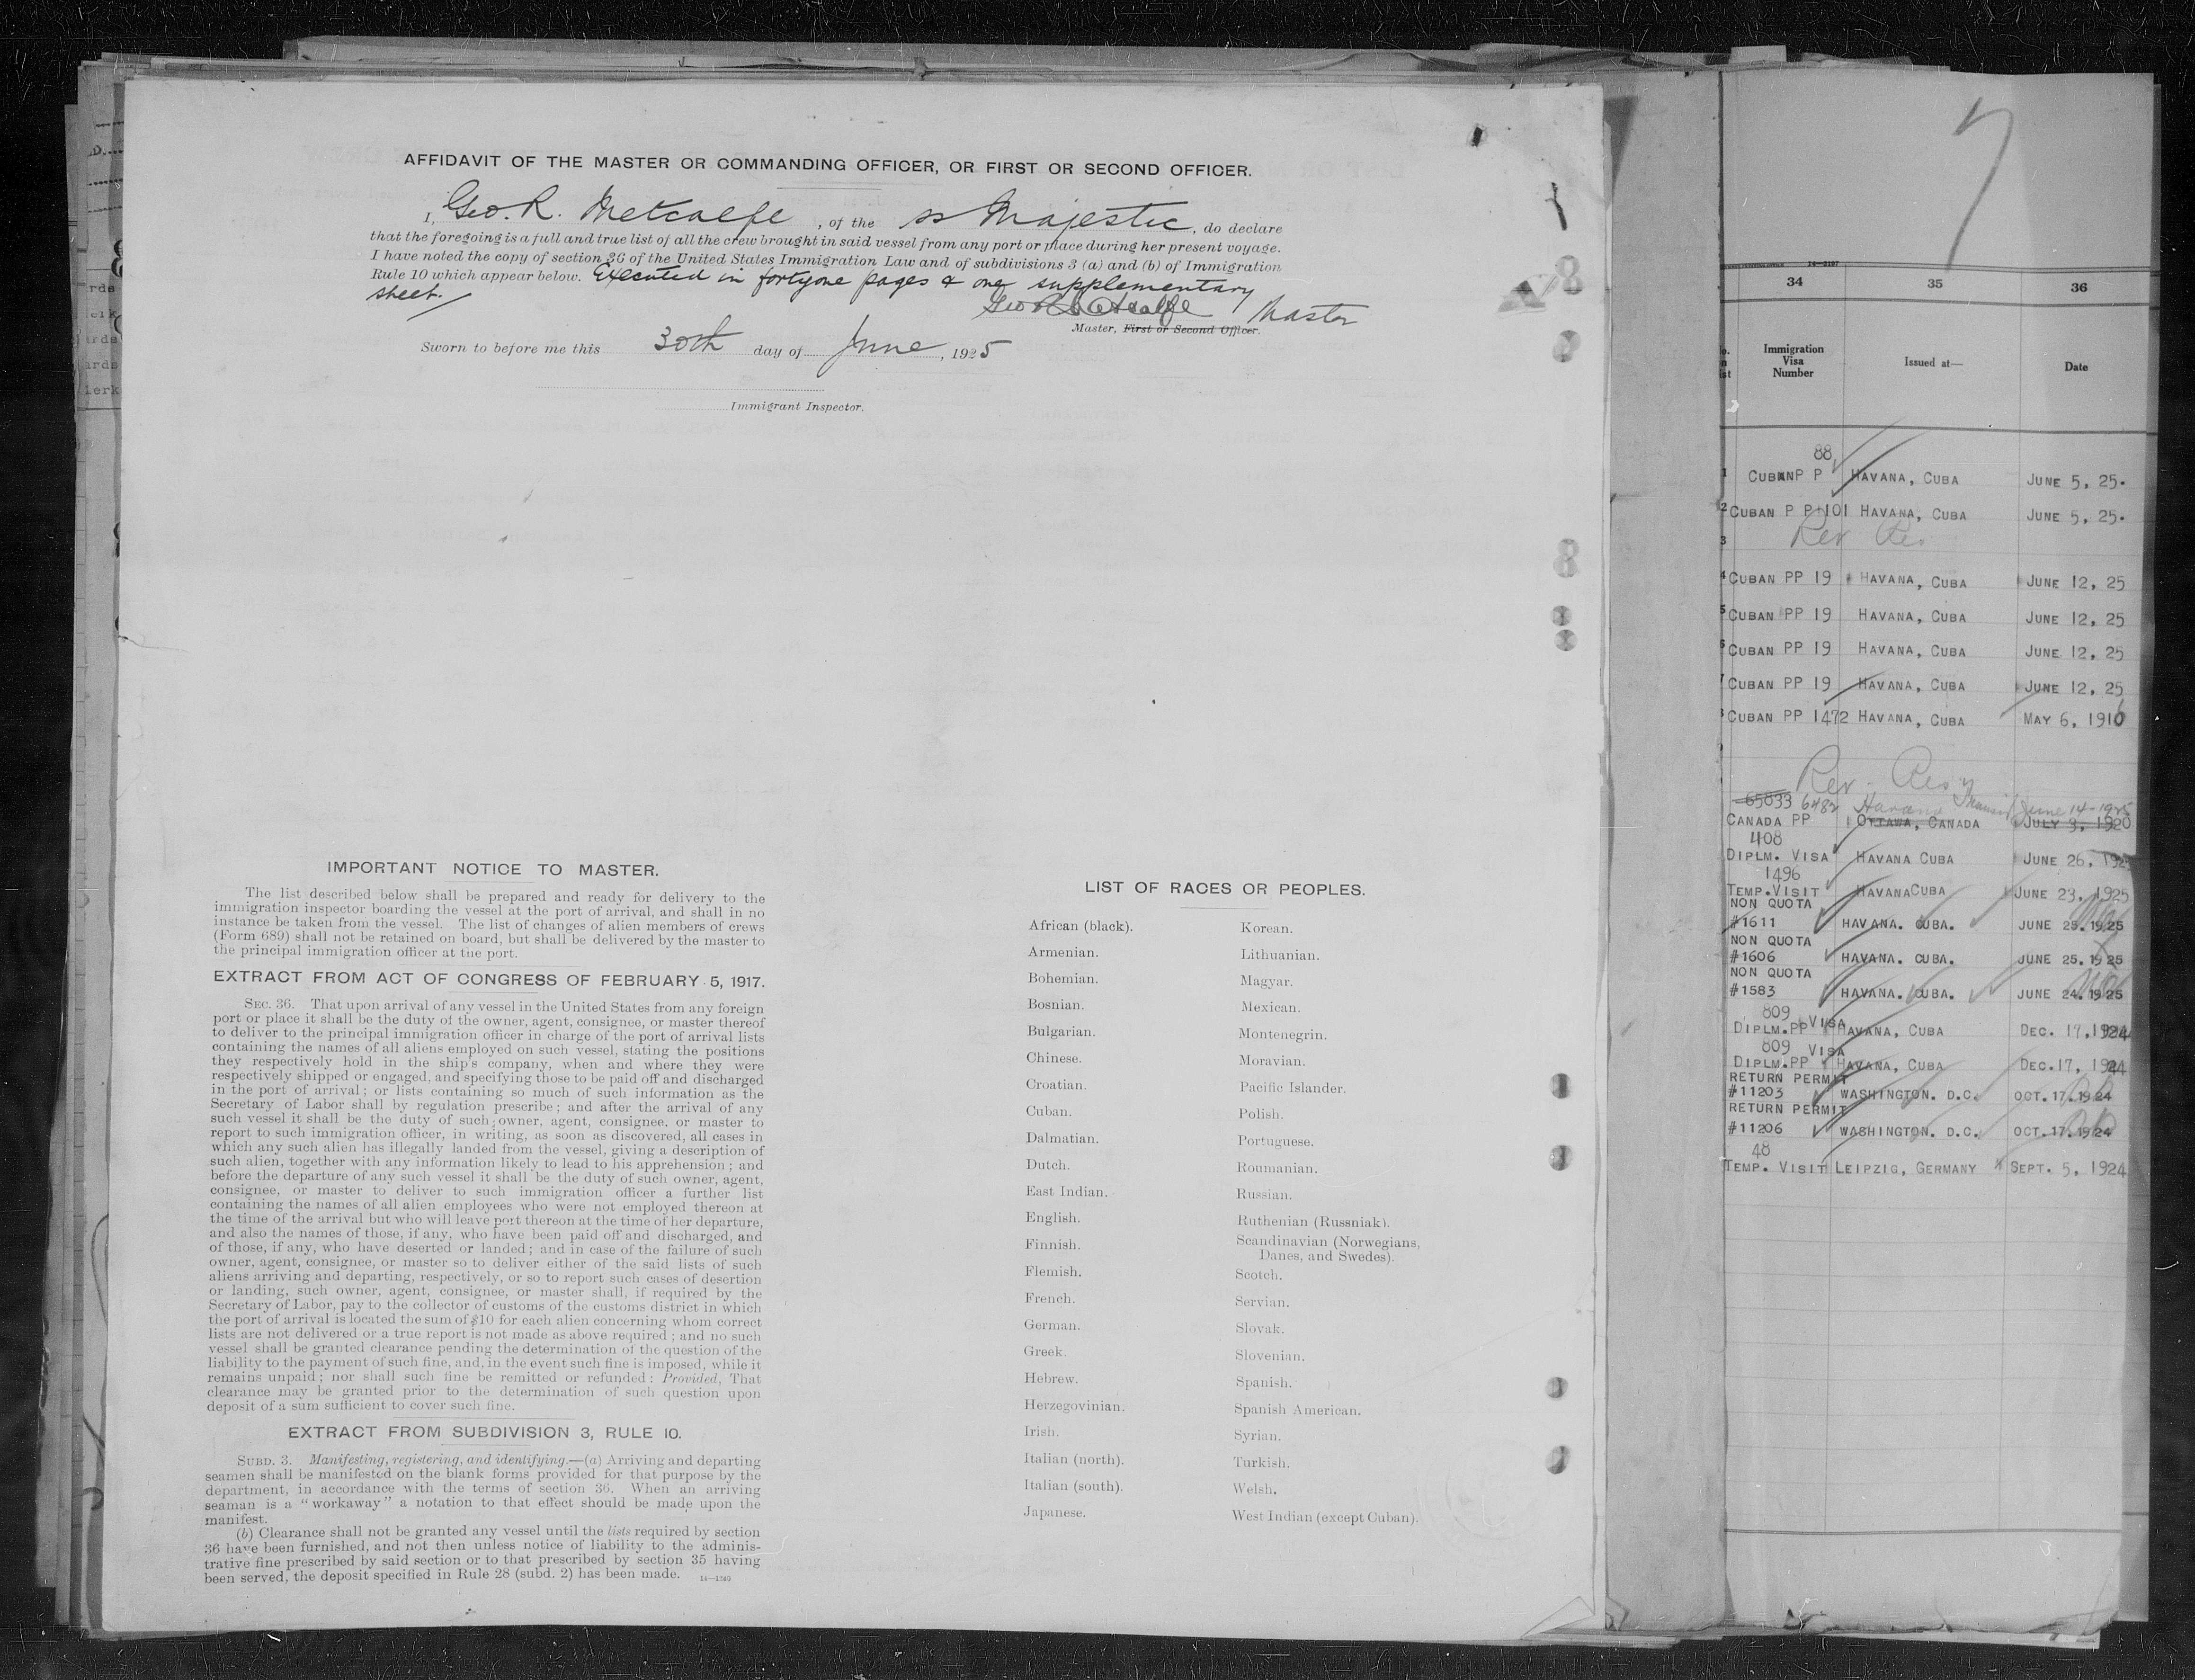 AFFIDAVIT OF THE MASTER OR COMMANDING OFFICER, OR FIRST OR SECOND OFFICER.
I, Geo. R. Metcalfe, of the ss Majestic, do declare
that the foregoing is a full and true list of all the crew brought in said vessel from any port or place during her present voyage.
I have noted the copy of section 36 of the United States Immigration Law and of subdivisions 3 (a) and (b) of Immigration
Rule 10 which appear below. Executed in fortyone pages & one supplementary
sheet.
Geo R Metcalfe Master
Master, First or Second Officer.
Sworn to before me this 30th day of June, 1925
Immigrant Inspector.
IMPORTANT NOTICE TO MASTER.
The list described below shall be prepared and ready for delivery to the
immigration inspector boarding the vessel at the port of arrival, and shall in no
instance be taken from the vessel. The list of changes of alien members of crews
(Form 689) shall not be retained on board, but shall be delivered by the master to
the principal immigration officer at the port.
EXTRACT FROM ACT OF CONGRESS OF FEBRUARY 5, 1917.
SEC. 36. That upon arrival of any vessel in the United States from any foreign
port or place it shall be the duty of the owner, agent, consignee, or master thereof
to deliver to the principal immigration officer in charge of the port of arrival lists
containing the names of all aliens employed on such vessel, stating the positions
they respectively hold in the ship's company, when and where they were
respectively shipped or engaged, and specifying those to be paid off and discharged
in the port of arrival; or lists containing so much of such information as the
Secretary of Labor shall by regulation prescribe; and after the arrival of any
such vessel it shall be the duty of such owner, agent, consignee, or master to
report to such immigration officer, in writing, as soon as discovered, all cases in
which any such alien has illegally landed from the vessel, giving a description of
such alien, together with any information likely to lead to his apprehension; and
before the departure of any such vessel it shall be the duty of such owner, agent,
consignee, or master to deliver to such immigration officer a further list
containing the names of all alien employees who were not employed thereon at
the time of the arrival but who will leave port thereon at the time of her departure,
and also the names of those, if any, who have been paid off and discharged, and
of those, if any, who have deserted or landed; and in case of the failure of such
owner, agent, consignee, or master so to deliver either of the said lists of such
aliens arriving and departing, respectively, or so to report such cases of desertion
or landing, such owner, agent, consignee, or master shall, if required by the
Secretary of Labor, pay to the collector of customs of the customs district in which
the port of arrival is located the sum of $10 for each alien concerning whom correct
lists are not delivered or a true report is not made as above required; and no such
vessel shall be granted clearance pending the determination of the question of the
liability to the payment of such fine, and, in the event such fine is imposed, while it
remains unpaid; nor shall such fine be remitted or refunded: Provided, That
clearance may be granted prior to the determination of such question upon
deposit of a sum sufficient to cover such fine.
EXTRACT FROM SUBDIVISION 3, RULE 10.
SUBD. 3. Manifesting, registering, and identifying.—(a) Arriving and departing
seamen shall be manifested on the blank forms provided for that purpose by the
department, in accordance with the terms of section 36. When an arriving
seaman is a "workaway" a notation to that effect should be made upon the
manifest.
(b) Clearance shall not be granted any vessel until the lists required by section
36 have been furnished, and not then unless notice of liability to the adminis-
trative fine prescribed by said section or to that prescribed by section 35 having
been served, the deposit specified in Rule 28 (subd. 2) has been made. 14—1240
LIST OF RACES OR PEOPLES.
African (black).
Armenian.
Bohemian.
Bosnian.
Bulgarian.
Chinese.
Croatian.
Cuban.
Dalmatian.
Dutch.
East Indian.
English.
Finnish.
Flemish.
French.
German.
Greek.
Hebrew.
Herzegovinian.
Irish.
Italian (north).
Italian (south).
Japanese.
Korean.
Lithuanian.
Magyar.
Mexican.
Montenegrin.
Moravian.
Pacific Islander.
Polish.
Portuguese.
Roumanian.
Russian.
Ruthenian (Russniak).
Scandinavian (Norwegians,
Danes, and Swedes).
Scotch.
Servian.
Slovak.
Slovenian.
Spanish.
Spanish American.
Syrian.
Turkish.
Welsh.
West Indian (except Cuban).
7
34 35 36
Immigration
Visa
Number
Issued at—
Date
88
CUBAN P P HAVANA, CUBA JUNE 5, 25.
2 CUBAN P P 101 HAVANA, CUBA JUNE 5, 25.
3 Rev Res
4 CUBAN PP 19 HAVANA, CUBA JUNE 12, 25
5 CUBAN PP 19 HAVANA, CUBA JUNE 12, 25
6 CUBAN PP 19 HAVANA, CUBA JUNE 12, 25
7 CUBAN PP 19 HAVANA, CUBA JUNE 12, 25
CUBAN PP 1472 HAVANA, CUBA MAY 6, 1916
Rev. Res
65033 6482 Havana Transit June 14-1925
CANADA PP OTTAWA, CANADA JULY 3, 1920
408
DIPLM. VISA HAVANA CUBA JUNE 26, 1925
1496
TEMP. VISIT HAVANA CUBA JUNE 23, 1925
NON QUOTA
#1611 HAVANA. CUBA. JUNE 25.1925
NON QUOTA
#1606 HAVANA. CUBA. JUNE 25.1925
NON QUOTA
#1583 HAVANA. CUBA. JUNE 24.1925
809 VISA
DIPLM.PP HAVANA, CUBA DEC. 17,1924
809 VISA
DIPLM.PP HAVANA, CUBA DEC.17, 1924
RETURN PERMIT
#11203 WASHINGTON. D.C. OCT.17.1924
RETURN PERMIT
#11206 WASHINGTON. D.C. OCT.17.1924
48
TEMP. VISIT LEIPZIG, GERMANY SEPT. 5, 1924